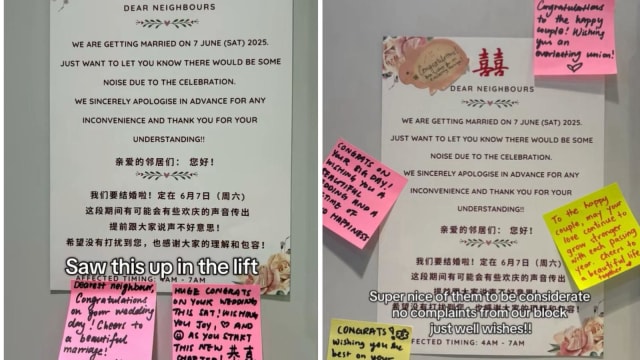 DEAR NEIGHBOURS
WE ARE GETTING MARRIED ON 7 JUNE (SAT) 2025.
JUST WANT TO LET YOU KNOW THERE WOULD BE SOME
NOISE DUE TO THE CELEBRATION.
WE SINCERELY APOLOGISE IN ADVANCE FOR ANY
INCONVENIENCE AND THANK YOU FOR YOUR
UNDERSTANDING!!
亲爱的邻居们： 您好！
我们要结婚啦！定在 6月7日（周六）
这段期间有可能会有些欢庆的声音传出
提前跟大家说声不好意思！
希望没有打扰到您，也感谢大家的理解和包容！
Saw this up in the lift
AFFECTED TIMING: 4AM - 7AM
Dearest neighbour,
Congratulations
on your wedding
day! Cheers to
a beautiful
marriage!
HUGE CONGRATS
ON YOUR WEDDING
THIS SAT! WISHING
YOU JOY, AND
AS YOU START
THIS NEW
Congratulations
to the happy
couple! Wishing
you an
everlasting union!
Congratulations!
囍
DEAR NEIGHBOURS
WE ARE GETTING MARRIED ON 7 JUNE (SAT) 2025.
JUST WANT TO LET YOU KNOW THERE WOULD BE SOME
NOISE DUE TO THE CELEBRATION.
WE SINCERELY APOLOGISE IN ADVANCE FOR ANY
INCONVENIENCE AND THANK YOU FOR YOUR
UNDERSTANDING!!
CONGRATS ON
YOUR BIG DAY!
WISHING YOU A
BEAUTIFUL
WEDDING AND A
HAPPINESS
To the happy
couple, may your
love continue to
grow stronger
with each passing
year. Cheers to
a beautiful life
together
亲爱的邻居们： 您好！
我们要结婚啦！定在 6月7日（周六）
这段期间有可能会有些欢庆的声音传出
Super nice of them to be considerate
no complaints from our block
just well wishes!!
希望没有打扰到您，也感谢大家的理解和包容！
TIMING: 4AM - 7AM
CONGRATS!
wishing you the
best on your